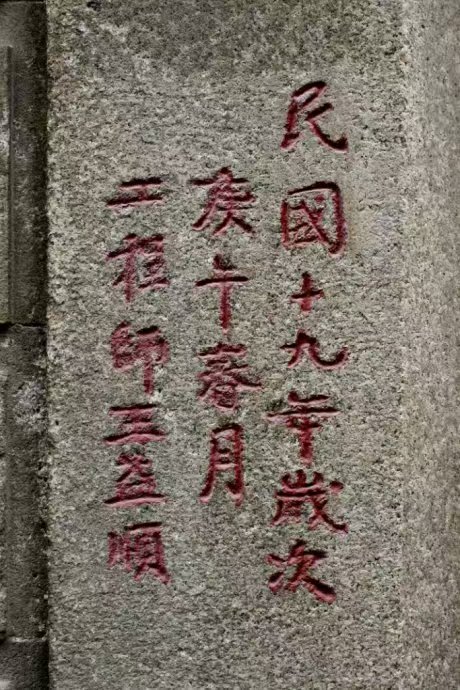 民國十九年歲次
庚午春月
工程師王益順